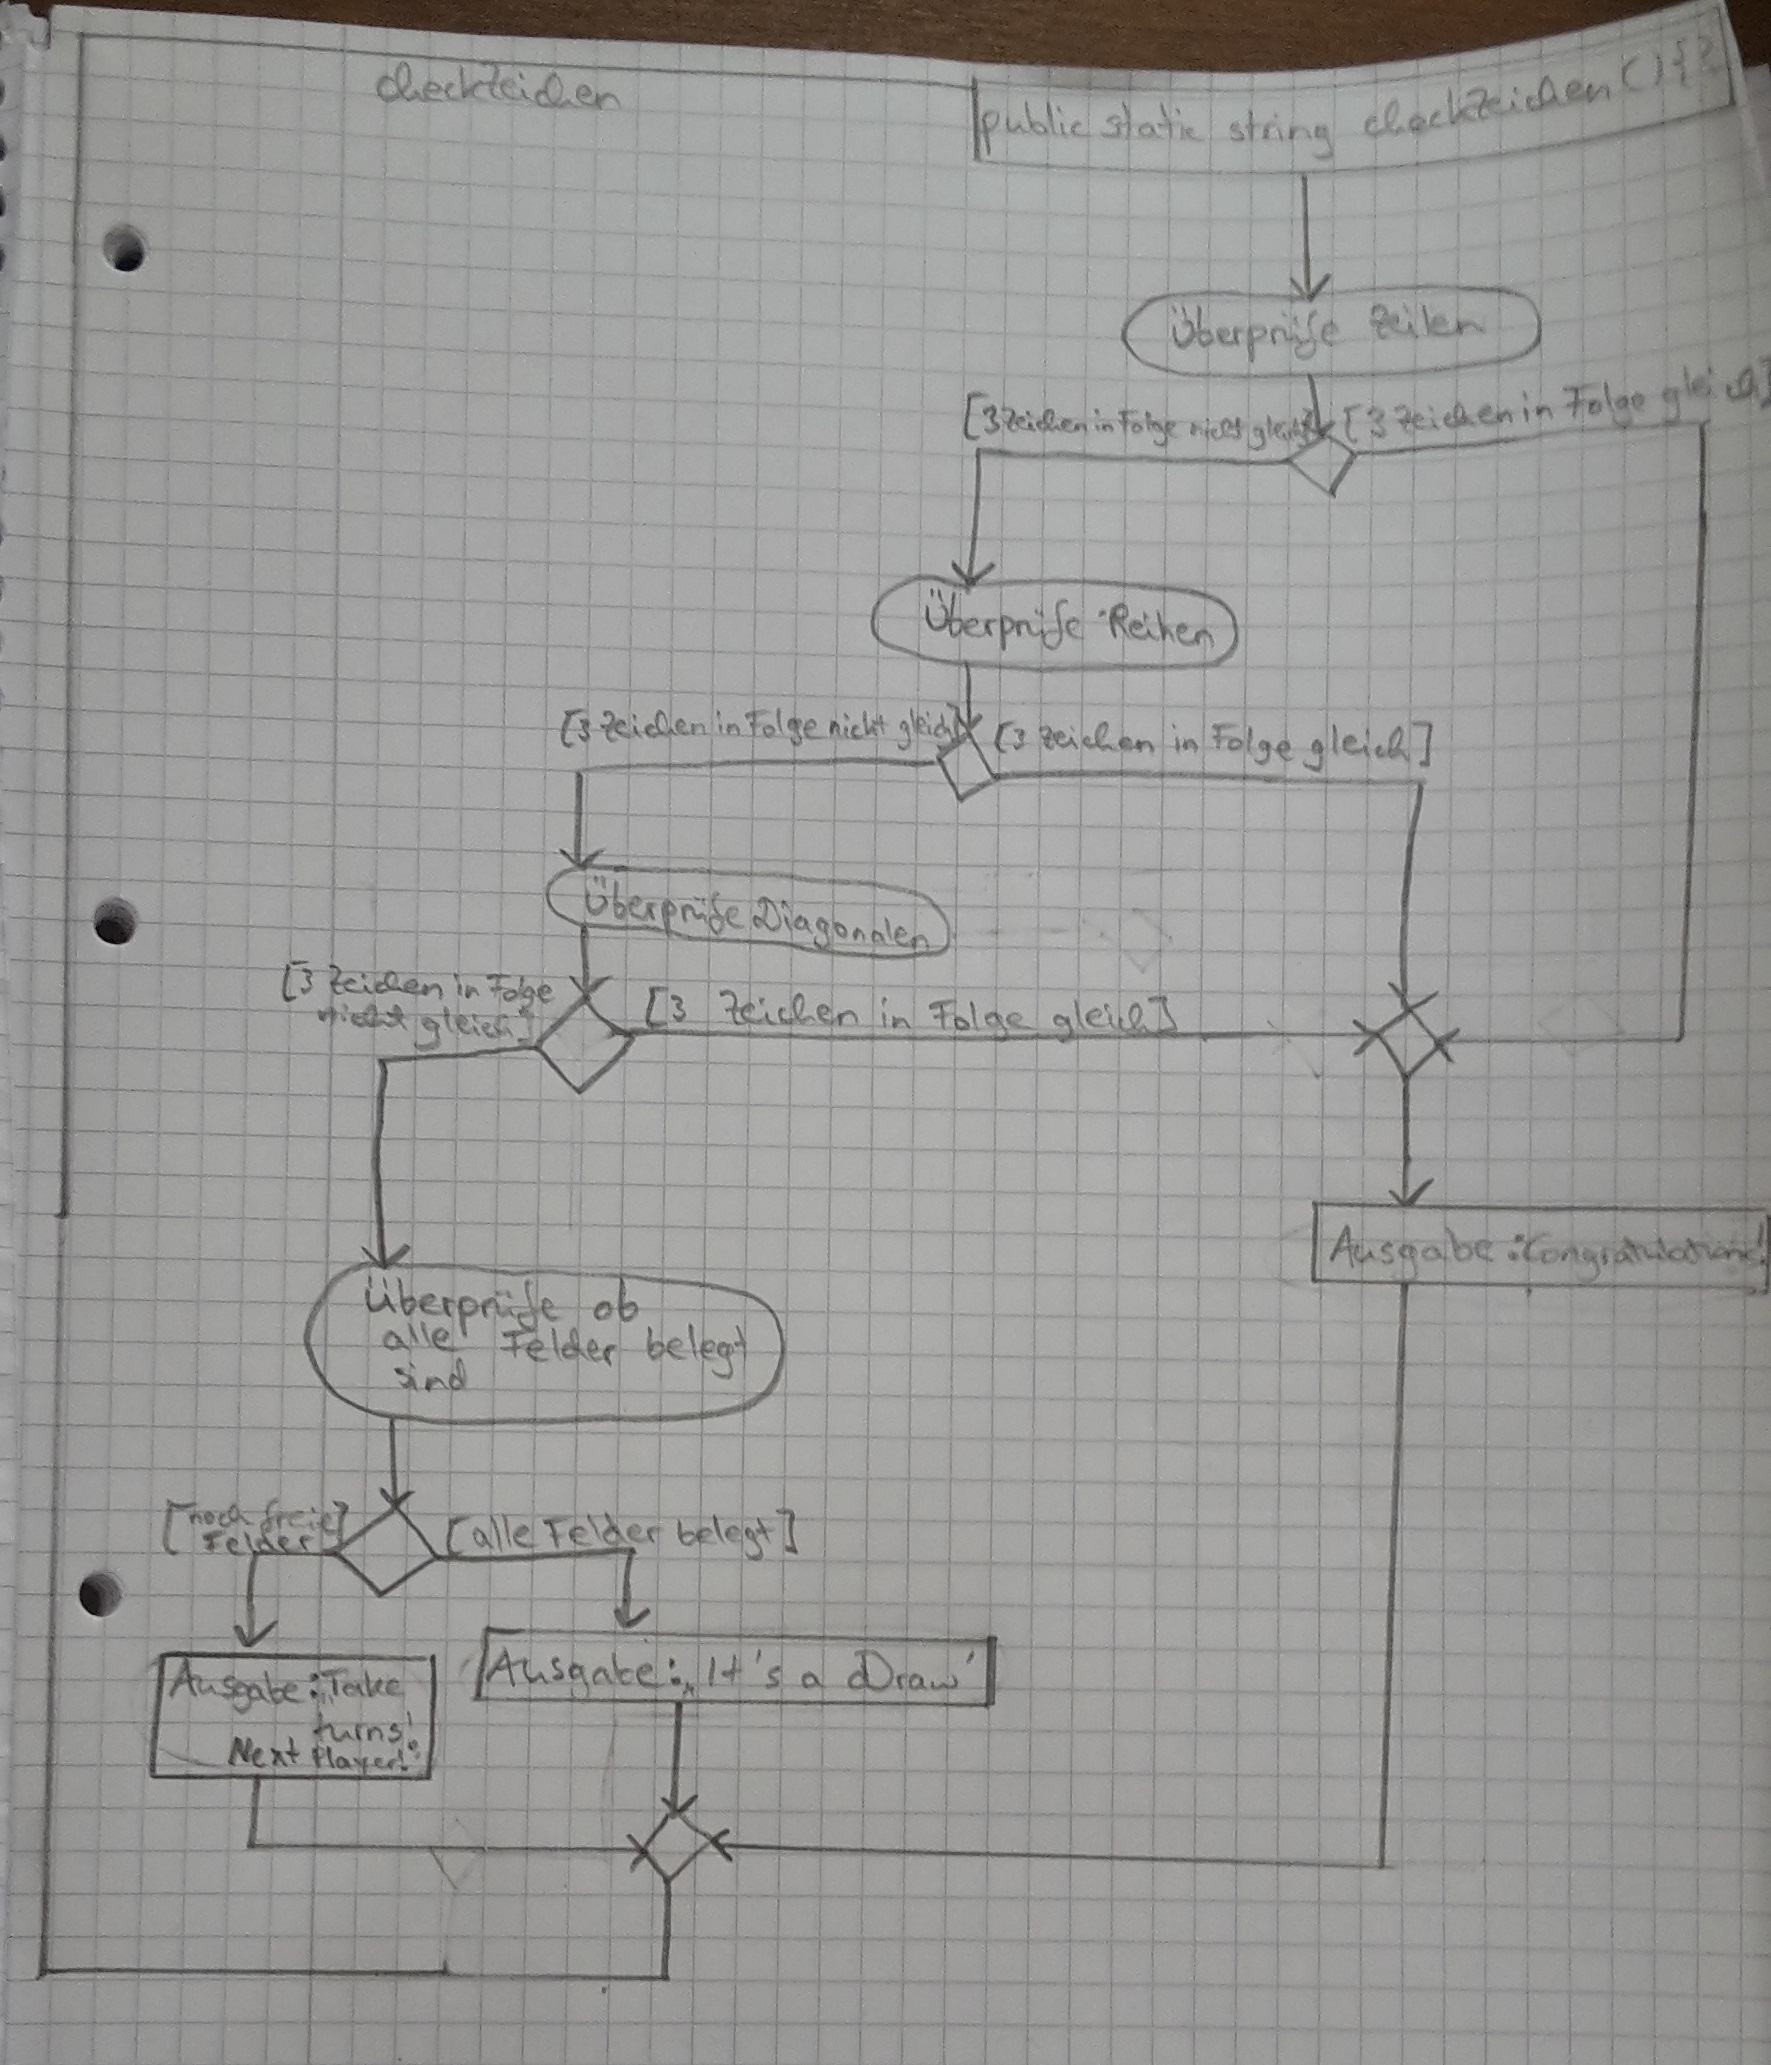 checkzeichen
public static string checkzeichen(){}
Überprüfe Zeilen
[3 Zeichen in Folge nicht gleich]
[3 Zeichen in Folge gleich]
Überprüfe Reihen
[3 Zeichen in Folge nicht gleich]
[3 Zeichen in Folge gleich]
Überprüfe Diagonalen
[3 Zeichen in Folge
nicht gleich]
[3 Zeichen in Folge gleich]
Ausgabe: Congratulations!
Überprüfe ob
alle Felder belegt
sind
[noch freie]
Felder
[alle Felder belegt]
Ausgabe: „Take
turns!
Next Player!"
Ausgabe: „It's a Draw'